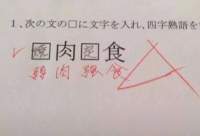 1、次の文の□に文字を入れ、四字熟語を
肉 食
弱肉強食